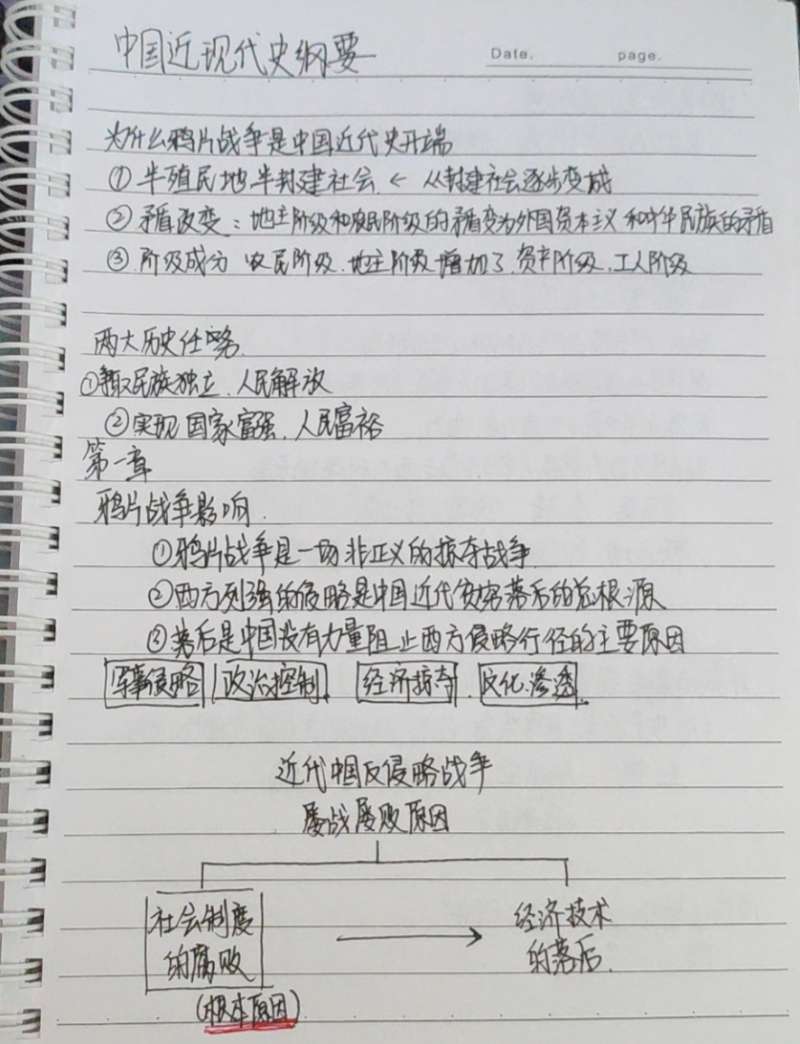 中国近现代史纲要
Date. page.
为什么鸦片战争是中国近代史开端
① 半殖民地半封建社会 ← 从封建社会逐步变成
② 矛盾改变：地主阶级和农民阶级的矛盾变为外国资本主义和中华民族的矛盾
③ 阶级成分 农民阶级、地主阶级 增加了 资产阶级、工人阶级
两大历史任务
①争取民族独立、人民解放
②实现国家富强、人民富裕
第一章
鸦片战争影响.
①鸦片战争是一场非正义的掠夺战争.
②西方列强的侵略是中国近代贫穷落后的总根源
③落后是中国没有力量阻止西方侵略行径的主要原因
军事侵略 政治控制、经济掠夺、文化渗透.
近代中国反侵略战争
屡战屡败原因
社会制度 → 经济技术
的腐败 的落后.
(根本原因)